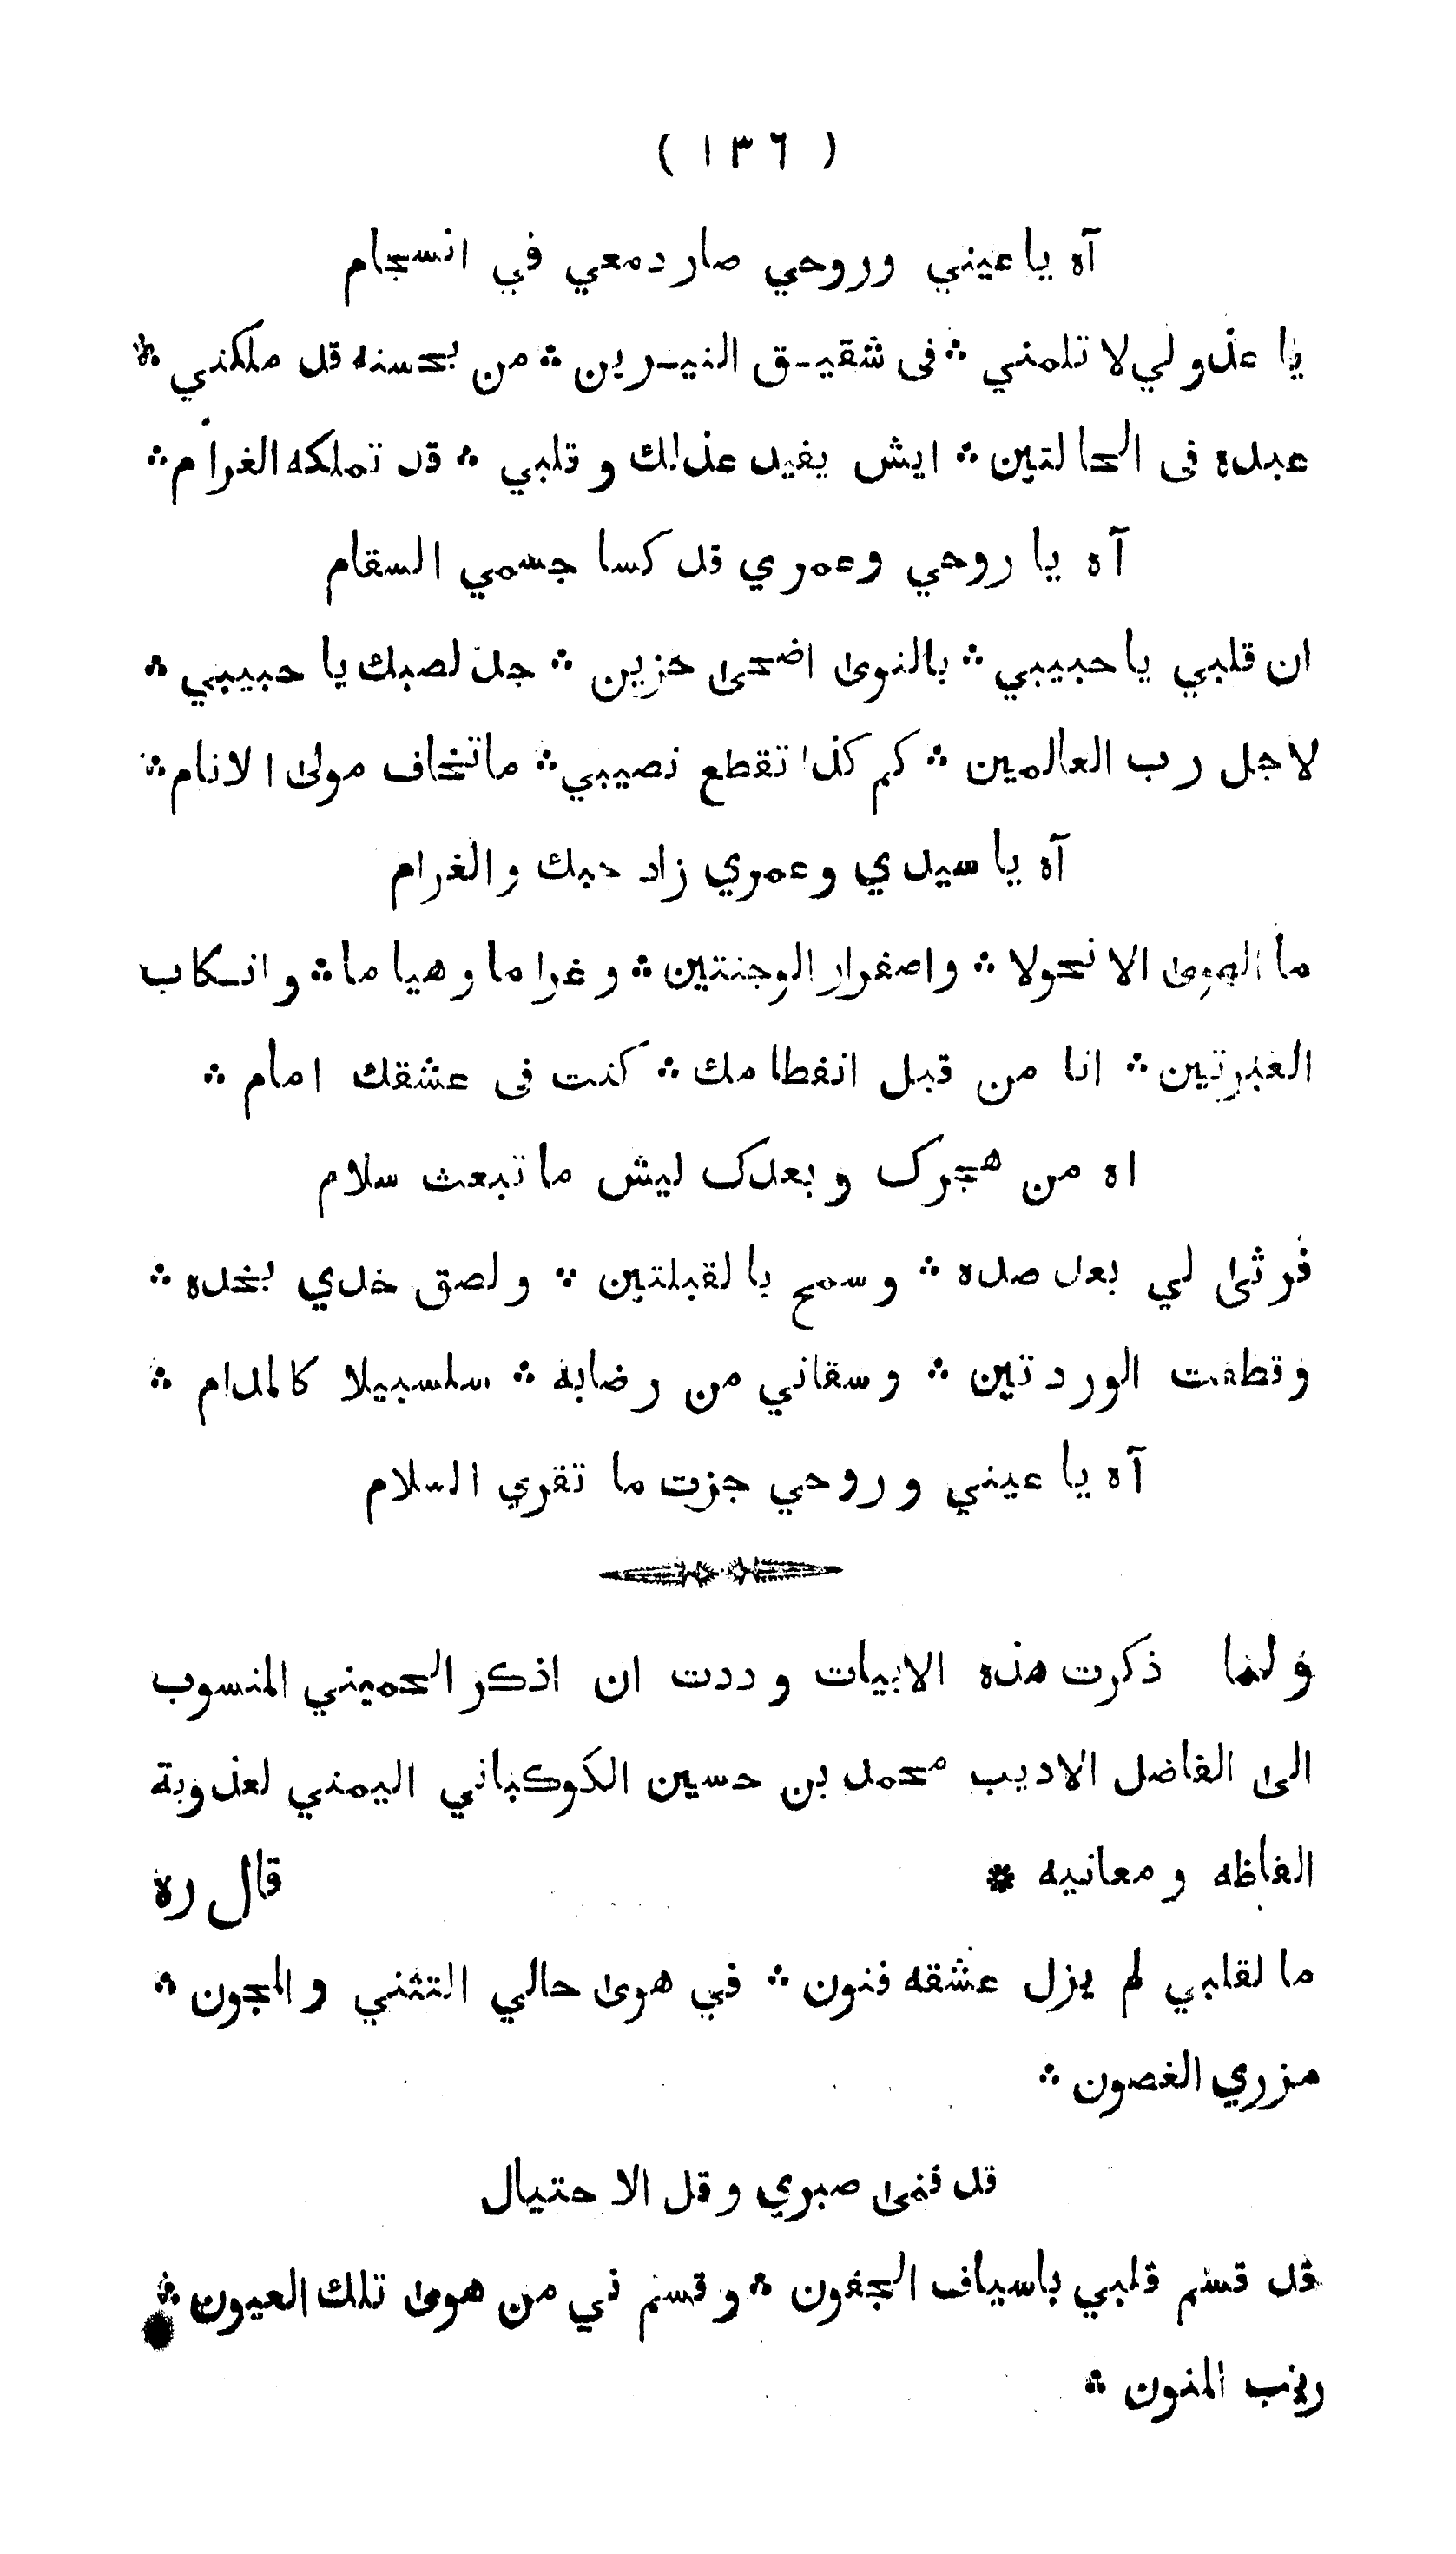 ( ١٣٦ )
آه يا عيني وروحي صار دمعي في انسجام
يا عذولي لا تلمني ∴ فى شقيـق النيـرين ∴ من بحسنه قد ملكني *
عبده فى الحالتين ∴ ايش يفيد عذلك وقلبي ∴ قد تملكه الغرام ∴
آه يا روحي وعمري قد كسا جسمي السقام
ان قلبي ياحبيبي ∴ بالنوى اضحى حزين ∴ جد لصبك يا حبيبي ∴
لاجل رب العالمين ∴ كم كذا تقطع نصيبي ∴ ماتخاف مولى الانام ∴
آه يا سيدي وعمري زاد حبك والغرام
ما الهوى الا نحولا ∴ واصفرار الوجنتين ∴ وغراما وهياما ∴ وانسكاب
العبرتين ∴ انا من قبل انفطامك ∴ كنت فى عشقك امام ∴
اه من هجرك وبعدك ليش ماتبعث سلام
فرثى لي بعد صده ∴ وسمح بالقبلتين ∴ ولصق خدي بخده ∴
وقطفت الوردتين ∴ وسقاني من رضابه ∴ سلسبيلا كالمدام ∴
آه يا عيني وروحي جزت ما تقري السلام
ولما ذكرت هذه الابيات وددت ان اذكر الحميني المنسوب
الى الفاضل الاديب محمد بن حسين الكوكباني اليمني لعذوبة
الفاظه ومعانيه * قال ره
ما لقلبي لم يزل عشقه فنون ∴ في هوى حالي التثني والمجون ∴
مزري الغصون ∴
قد فنى صبري وقل الاحتيال
قد قسم قلبي باسياف الجفون ∴ وقسم لي من هوى تلك العيون ∴
ريب المنون ∴